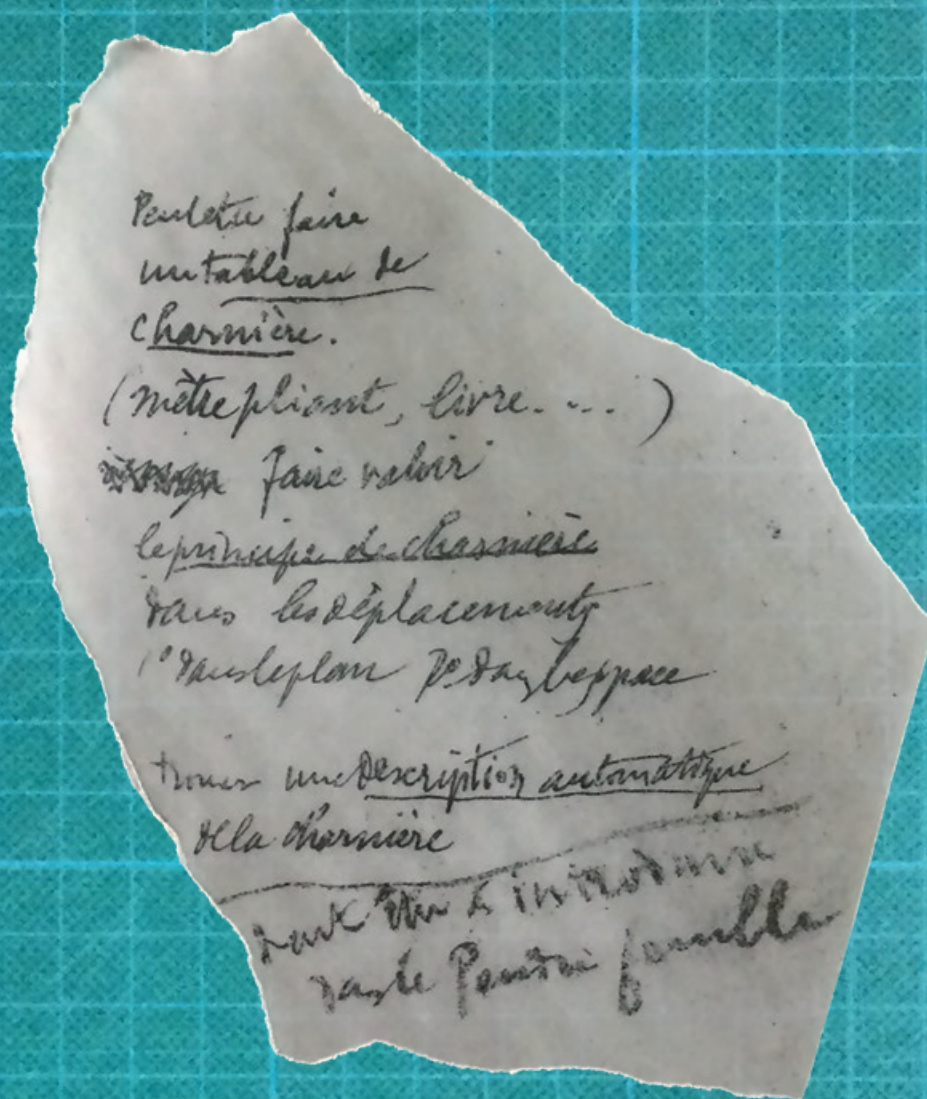 Peutetre faire
un tableau de
charnière.
(mètre pliant, livre....)
faire valoir
le principe de charnière
dans les déplacements
1° dans le plan 2° dans l'espace
trouver une description automatique
de la charnière
peut être à introduire
dans le Pendu femelle